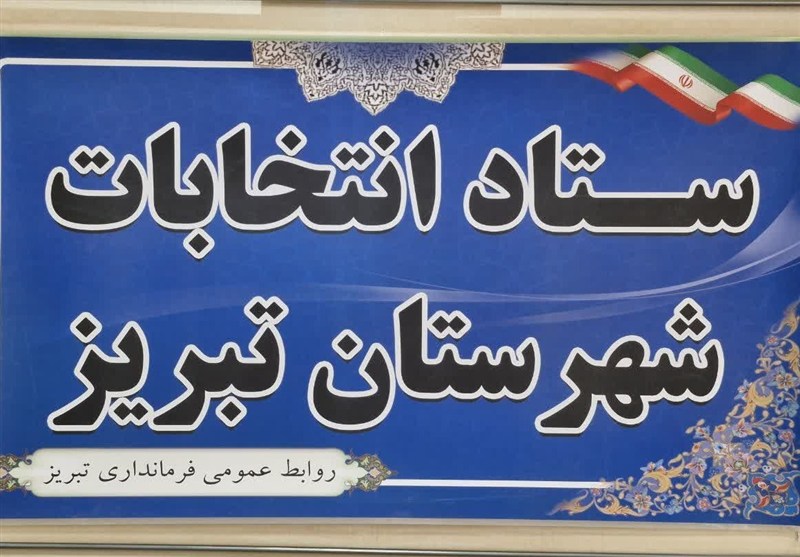 ستاد انتخابات
شهرستان تبریز
روابط عمومی فرمانداری تبریز